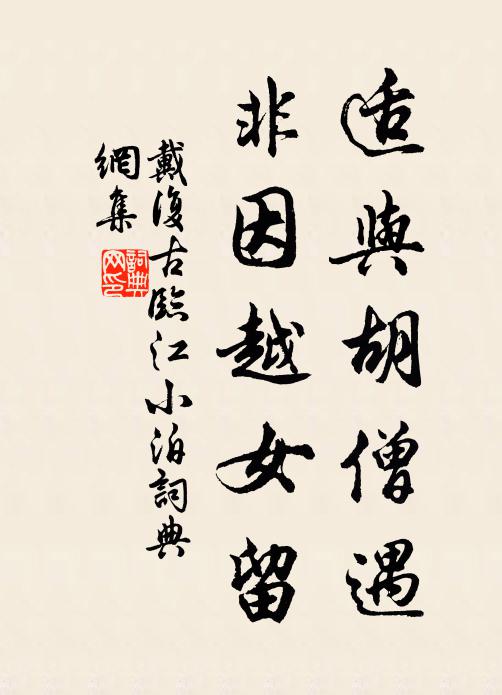 适與胡僧遇
非因越女留
戴復古臨江小泊詞典
網集
詞典
网印